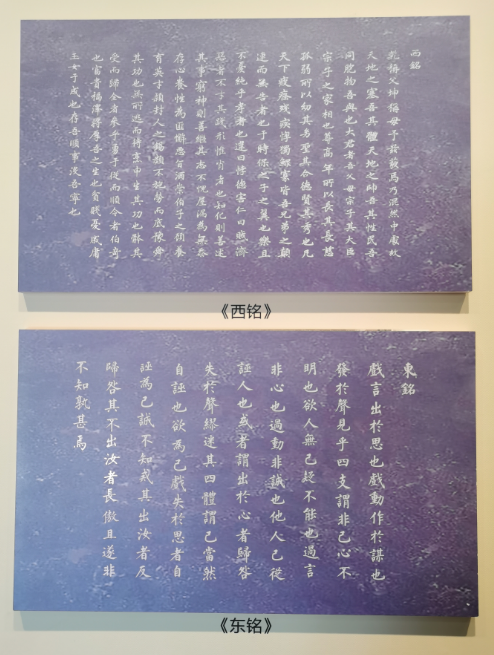 西銘
乾稱父坤稱母予茲藐焉乃混然中處故
天地之塞吾其體天地之帥吾其性民吾
同胞物吾與也大君者吾父母宗子其大臣
宗子之家相也尊高年所以長其長慈
孤弱所以幼其幼聖其合德賢其秀也凡
天下疲癃殘疾惸獨鰥寡皆吾兄弟之顛
連而無告者也于時保之子之翼也樂且
不憂純乎孝者也違曰悖德害仁曰賊濟
惡者不才其踐形惟肖者也知化則善述
其事窮神則善繼其志不愧屋漏為無忝
存心養性為匪懈惡旨酒崇伯子之顧養
育英才潁封人之錫類不弛勞而底豫舜
其功也無所逃而待烹申生其恭也體其
受而歸全者參乎勇于從而順令者伯奇
也富貴福澤將厚吾之生也貧賤憂戚庸
玉女于成也存吾順事沒吾寧也
《西铭》
東銘
戲言出於思也戲動作於謀也
發於聲見乎四支謂非己心不
明也欲人無己疑不能也過言
非心也過動非誠也他人己從
誣人也或者謂出於心者歸咎
失於聲繆迷其四體謂己當然
自誣也欲為己戲失於思者自
誣為己誠不知戒其出汝者反
歸咎其不出汝者長傲且遂非
不知孰甚焉
《东铭》